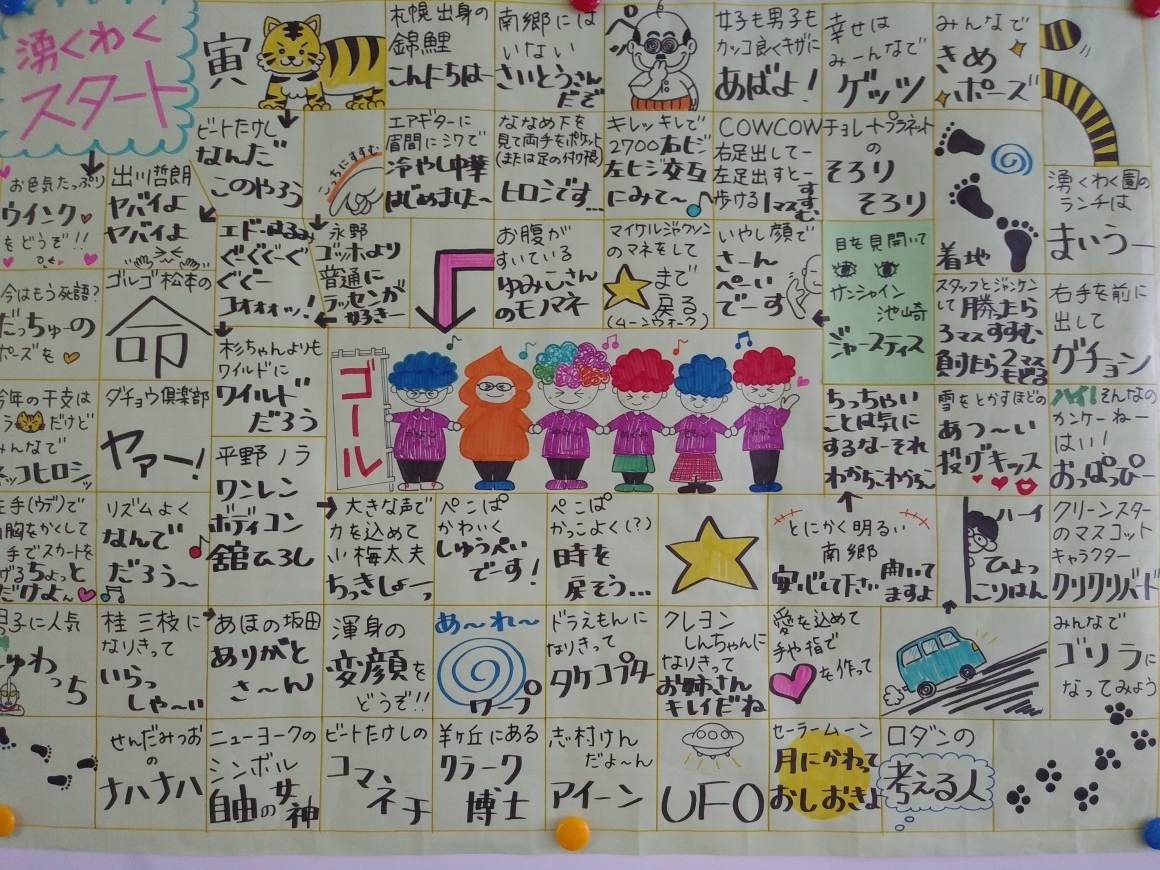 湧くわく
スタート
寅
札幌出身の
錦鯉
こんにちは
南郷には
いない
さいとうさん
だぞ
ペッ
女子も男子も
カッコ良くキザに
あばよ!
幸せは
みーんなで
ゲッツ
みんなで
きめ
ポーズ
ビートたけし
なんだ
このやろう
こっちにすすむ
エアギターに
眉間にシワで
冷やし中華
はじめました~
ななめ下を
見て両手をポケット
(または足の付け根)
ヒロシです...
キレッキレで
2700右ヒジ
左ヒジ交互
にみて~♪
COWCOW
右足出してー
左足出すとー
歩ける
1マスすすむ
チョコレートプラネット
の
そろり
そろり
着地
湧くわく園の
ランチは
まいうー
お色気たっぷり
ウインク♥
をどうぞ!!
出川哲朗
ヤバイよ
ヤバイよ
エド・はるみ
ぐぐぐーぐ
ぐぐー
コオォォッ!
永野
ゴッホより
普通に
ラッセンが
好きー
お腹が
すいている
ゆみこさん
のモノマネ
マイケルジャクソン
のマネをして
まで
戻る
(ムーンウォーク)
いやし顔で
さーん
ぺーい
でーす
目を見開いて
サンシャイン
池崎
ジャースティス
スタッフとジャンケン
して勝ったら
3マスすすむ
負けたら2マス
もどる
右手を前に
出して
グチョン
今はもう死語?
だっちゅーの
ポーズを
ゴルゴ松本の
命
杉ちゃんよりも
ワイルドに
ワイルド
だろう
ゴール
ちっちゃい
ことは気に
するなーそれ
わかちこわかちこ
雪をとかすほどの
あつ~い
投げキッス
ハイ!そんなの
カンケーねー
はい!
おっぱっぴー
今年の干支は
だけど
みんなで
ネッコヒロシッ
ダチョウ倶楽部
ヤァー!
平野ノラ
ワンレン
ボディコン
舘ひろし
左手(ウデ)で
胸をかくして
手でスカートを
げるちょっと
だけよん♥
リズムよく
なんで
だろう~
大きな声で
力を込めて
小梅太夫
ちっきしょー
ぺこぱ
かわいく
しゅうぺい
でーす!
ぺこぱ
かっこよく(?)
時を
戻そう...
とにかく明るい
南郷
安心して下さい
開いて
ますよ
ハーイ
ひょっ
こりはん
クリーンスター
のマスコット
キャラクター
クリクリバード
男子に人気
しゅわ
っち
桂三枝に
なりきって
いらっ
しゃ~い
あほの坂田
ありがと
さ~ん
渾身の
変顔を
どうぞ!!
あ~れ~
ワープ
ドラえもんに
なりきって
タケコプター
クレヨン
しんちゃんに
なりきって
お姉さん
キレイだね
愛を込めて
手や指で
♥を作って
みんなで
ゴリラに
なってみよう
せんだみつお
の
ナハナハ
ニューヨークの
シンボル
自由の女神
ビートたけしの
コマネチ
羊ヶ丘にある
クラーク
博士
志村けん
だよ~ん
アイーン
UFO
セーラームーン
月にかわって
おしおきよ
ロダンの
考える人